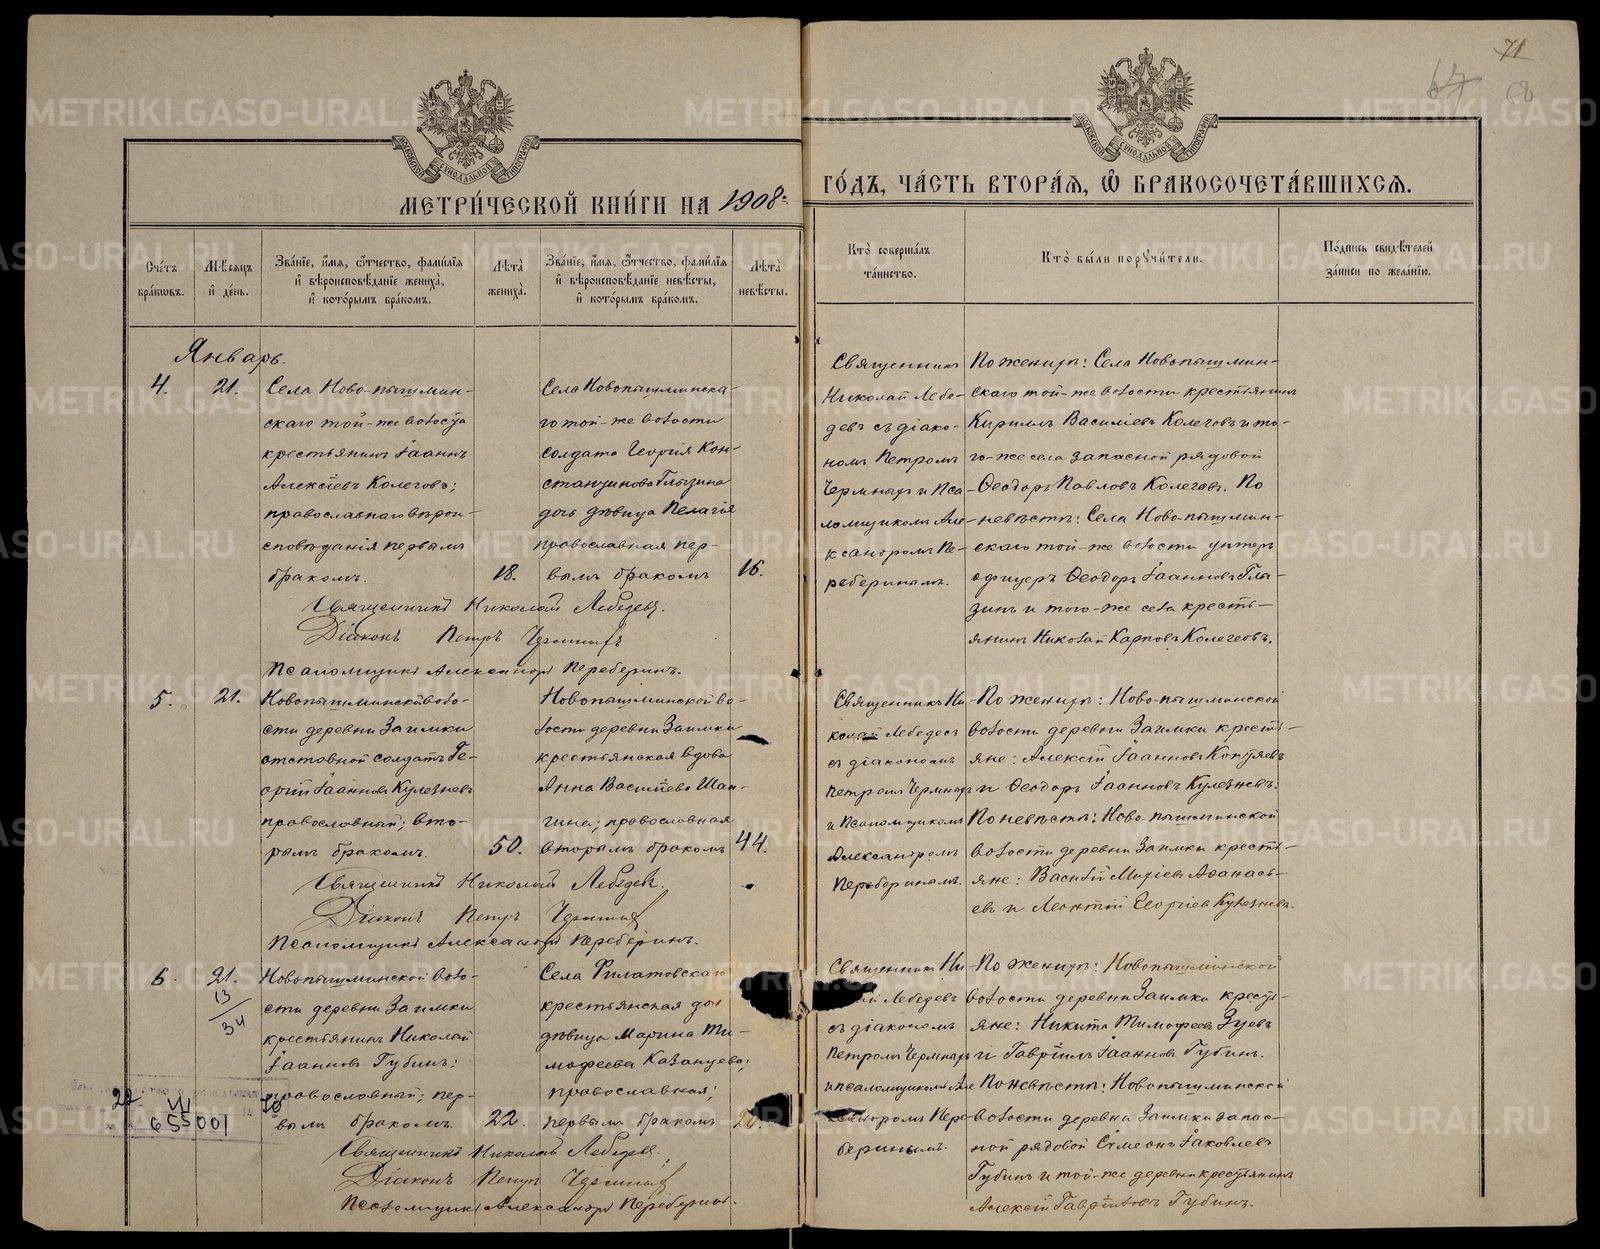 МЕТРИ́ЧЕСКОЙ КНИ́ГИ НА 1908
ГО́ДЪ, ЧА́СТЬ ВТОРА́Я, Ѡ БРАКОСОЧЕТА́ВШИХСЯ.
Сче́тъ бра́ковъ.
Мѣ́сяцъ и де́нь.
Зва́нїе, и́мя, ѻ́тчество, фами́лїя и вѣроисповѣ́данїе жениха̀, и кото́рымъ бра́комъ.
Лѣ́та жениха̀.
Зва́нїе, и́мя, ѻ́тчество, фами́лїя и вѣроисповѣ́данїе невѣ́сты, и кото́рымъ бра́комъ.
Лѣ́та невѣ́сты.
Кто̀ соверша́лъ та́инство.
Кто̀ бы́ли поручи́тели.
По́дпись свидѣ́телей за́писи по жела́нїю.
71
Январь.
4.
21.
Села Ново-пышмин-
скаго той-же волости
крестьянинъ Іааннъ
Алексіевъ Колеговъ;
православнаго вѣрои-
сповѣданія первымъ
бракомъ.
18.
Села Новопышминска-
го той-же волости
солдата Георгія Кон-
стантинова Глызина
дочь дѣвица Пелагія
православная пер-
вымъ бракомъ
16.
Священникъ
Николай Лебе-
девъ съ діако-
номъ Петромъ
Чермныхъ и Пса-
ломщикомъ Але-
ксандромъ Пе-
реберинымъ.
По женихѣ: Села Новопышмин-
скаго той-же волости крестьянинъ
Кириллъ Васильевъ Колеговъ и то-
го-же села запасной рядовой
Ѳеодоръ Павловъ Колеговъ. По
невѣстѣ: Села Ново-пышмин-
скаго той-же волости унтеръ
офицеръ Ѳеодоръ Іаанновъ Глы-
зинъ и того-же села кресть-
янинъ Николай Карповъ Колеговъ.
Священникъ Николай Лебедевъ.
Діаконъ Петръ Чермныхъ
Псаломщикъ Александръ Переберинъ.
5.
21.
Новопышминской воло-
сти деревни Заимки
отставной солдатъ Ге-
оргій Іаанновъ Кулезневъ
православный; вто-
рымъ бракомъ.
50.
Новопышминской во-
лости деревни Заимки
крестьянская вдова
Анна Васильева Шан-
гина; православная
вторымъ бракомъ
44.
Священникъ Ни-
колай Лебедевъ
съ діакономъ
Петромъ Чермныхъ
и Псаломщикомъ
Александромъ
Переберинымъ.
По женихѣ: Ново-пышминской
волости деревни Заимки кресть-
яне: Алексій Іаанновъ Копуяевъ
и Ѳеодоръ Іаанновъ Кулезневъ.
По невѣстѣ: Ново-пышминской
волости деревни Заимки кресть-
яне: Василій Аѳанась-
евъ и Леонтій Георгіевъ Кулезневъ.
Священникъ Николай Лебедевъ.
Діаконъ Петръ Чермныхъ
Псаломщикъ Александръ Переберинъ.
6.
21.
13
34
Новопышминской воло-
сти деревни Заимки
крестьянинъ Николай
Іаанновъ Губинъ;
православный; пер-
вымъ бракомъ
22.
Села Филатовскаго
крестьянская дочь
дѣвица Марина Ти-
мофеева Казанцева;
православная;
первымъ бракомъ
Священникъ Ни-
Лебедевъ
съ діакономъ
Петромъ Чермныхъ
и псаломщикомъ Але
ксандромъ Пере-
беринымъ.
По женихѣ: Новопышминской
волости деревни Заимки кресть-
яне: Никита Тимофеевъ Зуевъ
и Гавріилъ Іаанновъ Губинъ.
По невѣстѣ: Новопышминской
волости деревни Заимки запас-
ной рядовой Сумеонъ Іаковлевъ
Губинъ и той-же деревни крестьянинъ
Алексій Гавріиловъ Губинъ.
Священникъ Николай Лебедевъ.
Діаконъ Петръ Чермныхъ
Псаломщикъ Александръ Переберинъ.
655001
METRIKI.GASO-URAL.RU